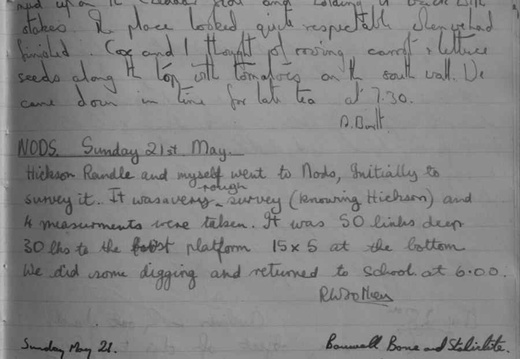 stakes. The place looked quite respectable when we had
finished. Cox and I thought of sowing carrot & lettuce
seeds along the top with tomatoes on the south wall. We
came down in time for late tea at 7.30.
NODS. Sunday 21st. May.
Hickson Randle and myself went to Nods, Initially to
survey it. It was a very rough survey (knowing Hickson) and
4 measurments were taken. It was 50 links deep
30 lks to the platform 15 x 5 at the bottom
We did some digging and returned to school at 6.00.
Sunday May 21. Banwell Bone and Stalictite.